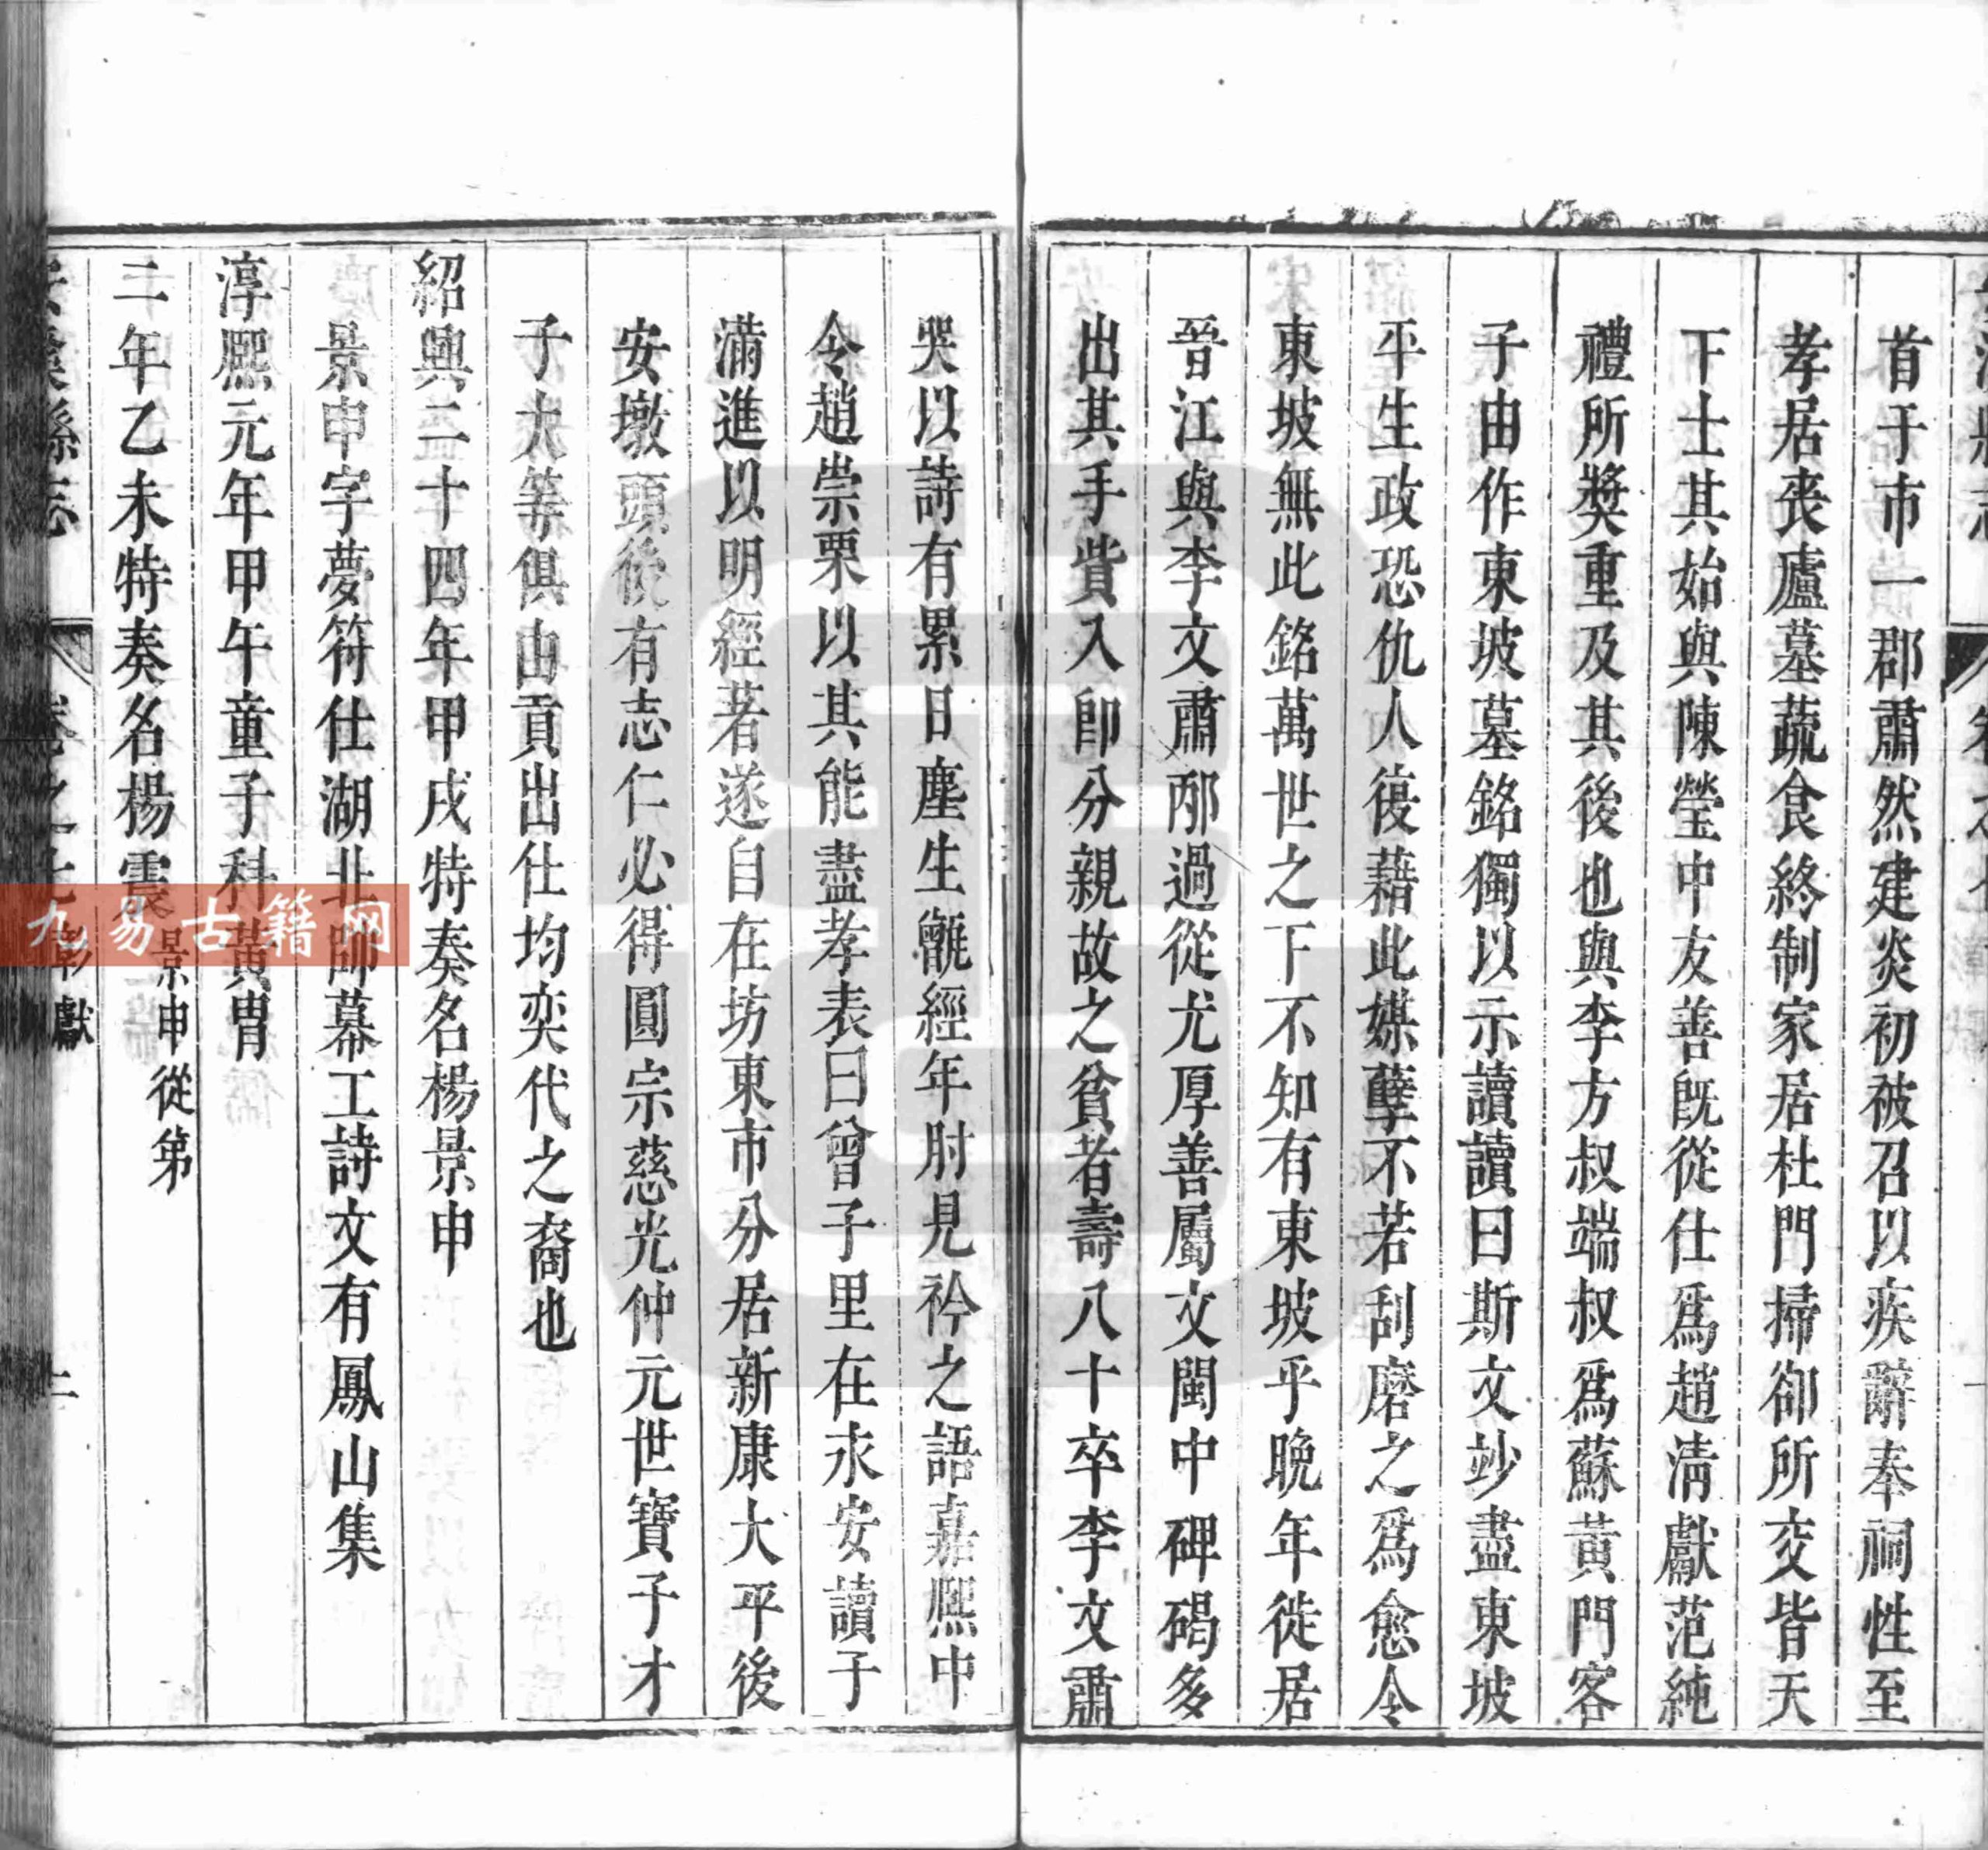 首于市一郡肅然建炎初被召以疾辭奉祠性至
孝居喪廬墓蔬食終制家居杜門掃卻所交皆天
下士其始與陳瑩中友善旣從仕爲趙淸獻范純
禮所獎重及其後也與李方叔端叔爲蘇黃門客
子由作東坡墓銘獨以示讀讀曰斯文妙盡東坡
平生政恐仇人復藉此媒孽不若刮磨之爲愈令
東坡無此銘萬世之下不知有東坡乎晚年徙居
晉江與李文肅邴過從尤厚善屬文閩中碑碣多
出其手貲入卽分親故之貧者壽八十卒李文肅
哭以詩有累日塵生甑經年肘見衿之語嘉熙中
令趙崇栗以其能盡孝表曰曾子里在永安讀子
滿進以明經著遂自在坊東市分居新康大平後
安墩頭後有志仁必得圓宗慈光仲元世寶子才
子大等俱由貢出仕均奕代之裔也
紹興二十四年甲戌特奏名楊景申
景申字夢符仕湖北帥幕工詩文有鳳山集
淳熙元年甲午童子科黃胄
二年乙未特奏名楊震景申從弟
卷之十七
彰獻
二
九易古籍网